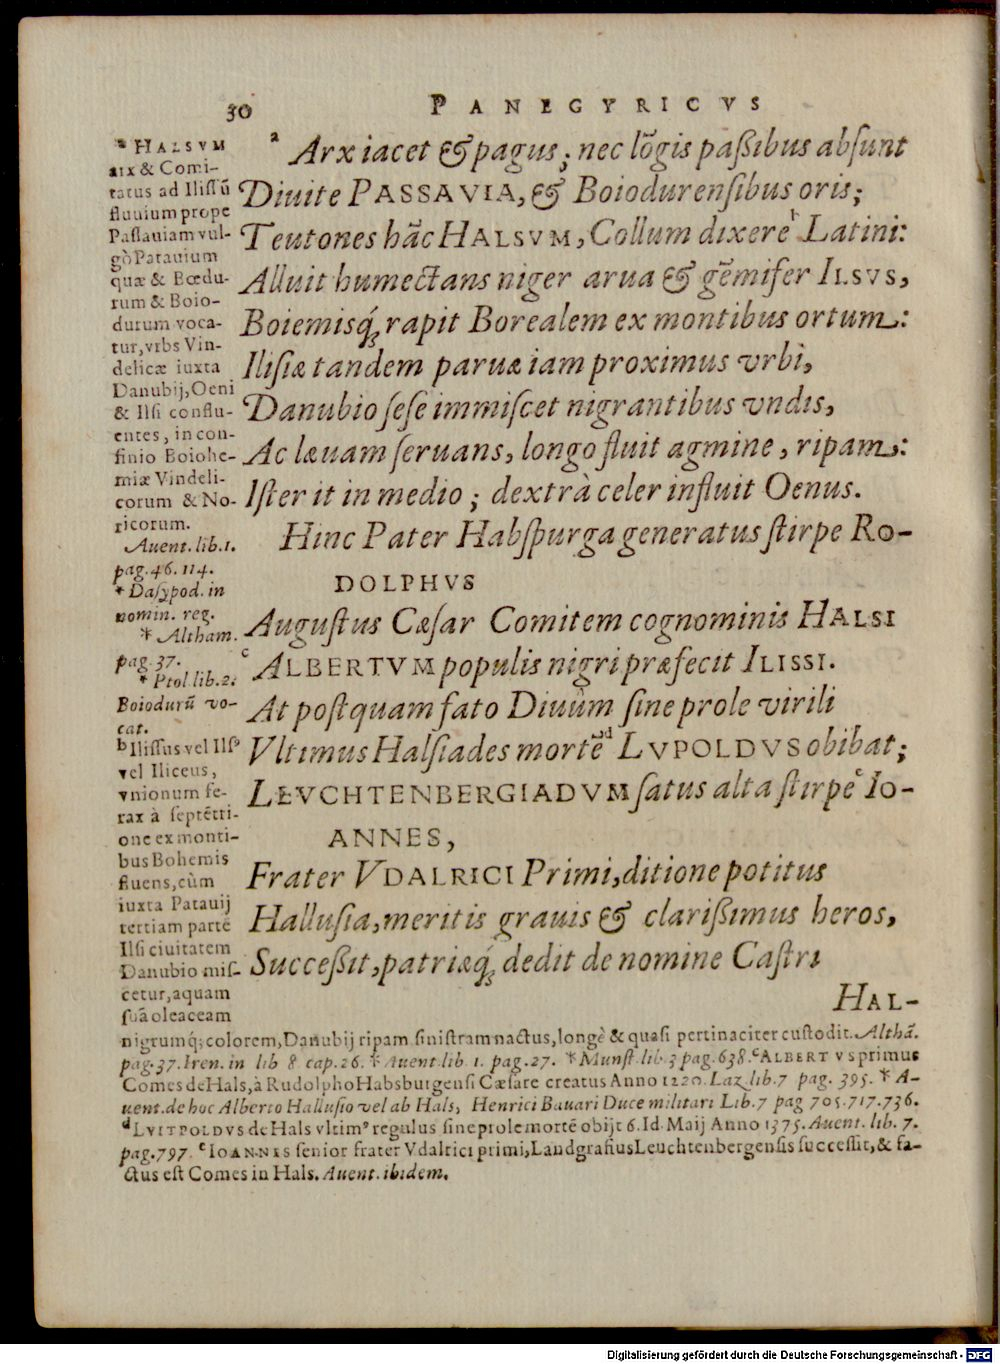 30
PANEGYRICVS
ᵃ Arx iacet & pagus; nec lõgis paßibus absunt
Diuite PASSAVIA, & Boiodurensibus oris;
Teutones hãc HALSVM, Collum dixereᵇ Latini:
Alluit humectans niger arua & gẽmifer ILSVS,
Boiemisq́; rapit Borealem ex montibus ortum:
Ilisiæ tandem paruæ iam proximus vrbi,
Danubio sese immiscet nigrantibus vndis,
Ac læuam seruans, longo fluit agmine, ripam:
Ister it in medio; dextrà celer influit Oenus.
Hinc Pater Habspurga generatus stirpe RO-
DOLPHVS
Augustus Cæsar Comitem cognominis HALSI
ᶜ ALBERTVM populis nigri præfecit ILISSI.
At postquam fato Diuûm sine prole virili
Vltimus Halsiades mortẽᵈ LVPOLDVS obibat;
LEVCHTENBERGIADVM satus alta stirpeᵉ IO-
ANNES,
Frater VDALRICI Primi, ditione potitus
Hallusia, meritis grauis & clarißimus heros,
Succeßit, patriæq́; dedit de nomine Castri
HAL-
ᵃ HALSVM
arx & Comi-
tatus ad Ilissũ
fluuium prope
Passauiam vul-
gò Patauium
quæ & Bœdu-
rum & Boio-
durum voca-
tur, vrbs Vin-
delicæ iuxta
Danubij, Oeni
& Ilsi conflu-
entes, in con-
finio Boiohe-
miæ Vindeli-
corum & No-
ricorum.
Auent. lib. 1.
pag. 46. 114.
* Dasypod. in
nomin. reg.
* Altham.
pag. 37.
* Ptol. lib. 2.
Boiodurũ vo-
cat.
ᵇ Ilissus vel Ilsꝰ
vel Iliceus,
vnionum fe-
rax à septẽtri-
one ex monti-
bus Bohemis
fluens, cùm
iuxta Patauij
tertiam partẽ
Ilsi ciuitatem
Danubio mis-
cetur, aquam
suã oleaceam
nigrumq́; colorem, Danubij ripam sinistram nactus, longè & quasi pertinaciter custodit. Althã.
pag. 37. Iren. in lib 8. cap. 26. * Auent. lib. 1. pag. 27. * Munst. lib. 3 pag. 638. ᶜ ALBERTVS primus
Comes de Hals, à Rudolpho Habsburgensi Cæsare creatus Anno 1220. Laz. lib. 7 pag. 395. * A-
uent. de hoc Alberto Hallusio vel ab Hals, Henrici Bauari Duce militari Lib. 7 pag 705. 717. 736.
ᵈ LVITPOLDVS de Hals vltimꝰ regulus sine prole mortẽ obijt 6. Id. Maij Anno 1375. Auent. lib. 7.
pag. 797. ᵉ IOANNES senior frater Vdalrici primi, Landgrafius Leuchtenbergensis successit, & fa-
ctus est Comes in Hals. Auent. ibidem.
Digitalisierung gefördert durch die Deutsche Forschungsgemeinschaft - DFG